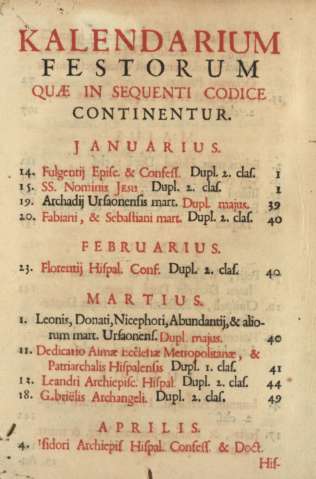 KALENDARIUM
FESTORUM
QUÆ IN SEQUENTI CODICE
CONTINENTUR.
JANUARIUS.
14. Fulgentij Episc. & Confess. Dupl. 2. clas. 1
15. SS. Nominis JESU Dupl. 2. clas. 1
19. Archadij Ursaonensis mart. Dupl. majus. 39
20. Fabiani, & Sebastiani mart. Dupl. 2. clas. 40
FEBRUARIUS.
23. Florentij Hispal. Conf. Dupl. 2. clas. 40
MARTIUS.
1. Leonis, Donati, Nicephori, Abundantij, & alio-
rum mart. Ursaonens. Dupl. majus. 40
11. Dedicatio Almæ Ecclesiæ Metropolitanæ, &
Patriarchalis Hispalensis Dupl. 1. clas. 41
12. Leandri Archiepisc. Hispal. Dupl. 2. clas. 44
18. Gabriëlis Archangeli. Dupl. 2. clas. 49
APRILIS.
4. Isidori Archiepis Hispal. Confess. & Doct.
His-